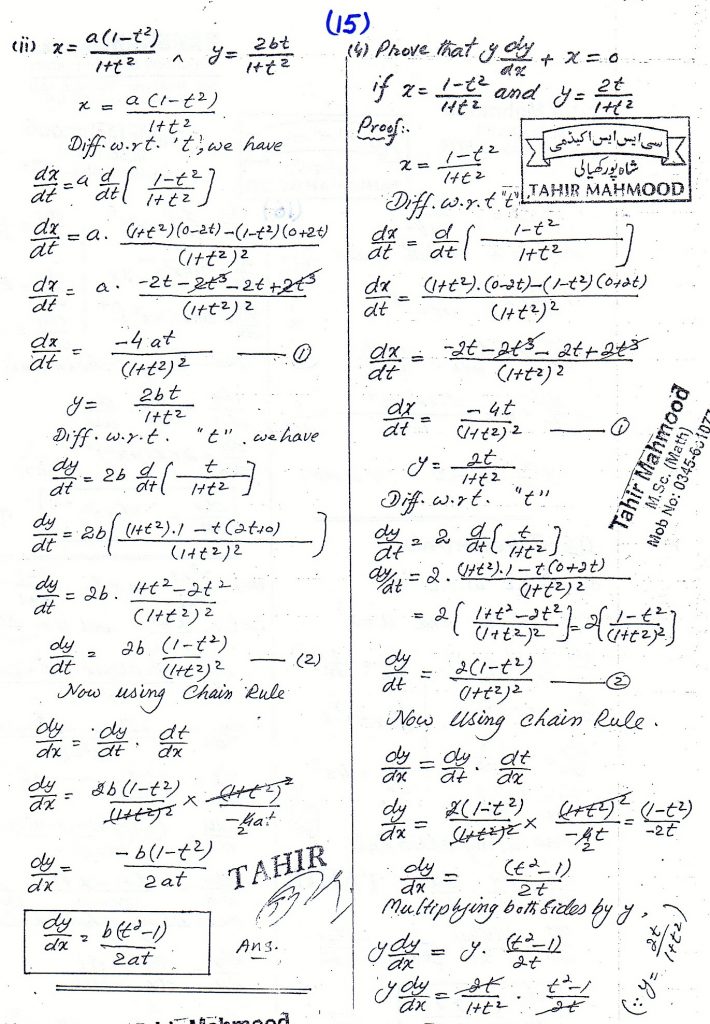 (15)
(ii) x = a(1-t²)/1+t² ∧ y = 2bt/1+t²
x = a(1-t²)/1+t²
Diff. w.r.t. 't', we have
dx/dt = a d/dt [1-t²/1+t²]
dx/dt = a. (1+t²)(0-2t)-(1-t²)(0+2t)/(1+t²)²
dx/dt = a. -2t-2t³-2t+2t³/(1+t²)²
dx/dt = -4at/(1+t²)² —— ①
y = 2bt/1+t²
Diff. w.r.t. "t". we have
dy/dt = 2b d/dt [t/1+t²]
dy/dt = 2b [(1+t²).1 - t(2t+0)/(1+t²)²]
dy/dt = 2b. 1+t²-2t²/(1+t²)²
dy/dt = 2b (1-t²)/(1+t²)² —— (2)
Now using Chain Rule
dy/dx = dy/dt . dt/dx
dy/dx = 2b(1-t²)/(1+t²)² × (1+t²)²/-4at 2
dy/dx = -b(1-t²)/2at
TAHIR
dy/dx = b(t²-1)/2at Ans.
(4) Prove that y dy/dx + x = 0
if x = 1-t²/1+t² and y = 2t/1+t²
Proof:.
سی ایس ایس اکیڈمی
شاہ پور کھیالی
TAHIR MAHMOOD
x = 1-t²/1+t²
Diff. w.r.t "t",
dx/dt = d/dt [1-t²/1+t²]
dx/dt = (1+t²).(0-2t)-(1-t²)(0+2t)/(1+t²)²
dx/dt = -2t-2t³-2t+2t³/(1+t²)²
dx/dt = -4t/(1+t²)² —— ①
y = 2t/1+t²
Diff. w.r.t. "t"
Tahir Mahmood
M.Sc. (Math)
Mob No: 0345-
dy/dt = 2 d/dt [t/1+t²]
dy/dt = 2. (1+t²).1-t(0+2t)/(1+t²)²
= 2 [1+t²-2t²/(1+t²)²] = 2[1-t²/(1+t²)²]
dy/dt = 2(1-t²)/(1+t²)² —— ②
Now Using Chain Rule.
dy/dx = dy/dt . dt/dx
dy/dx = 2(1-t²)/(1+t²)² × (1+t²)²/-4t 2 = (1-t²)/-2t
dy/dx = (t²-1)/2t
Multiplying both sides by y,
y dy/dx = y. (t²-1)/2t
y dy/dx = 2t/1+t² . t²-1/2t (∵ y = 2t/1+t²)
Mahmood